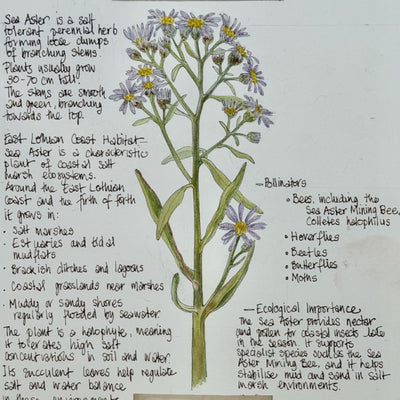 Sea Aster is a salt
tolerant perennial herb
forming loose clumps
of branching stems.
Plants usually grow
30-70 cm tall.
The stems are smooth
and green, branching
towards the top.
East Lothian Coast Habitat-
Sea Aster is a characteristic
plant of coastal salt
marsh ecosystems.
Around the East Lothian
Coast and the firth of forth
it grows in:
• Salt marshes
• Estuaries and tidal
mudflats
• Brackish ditches and lagoons
• Coastal grasslands near marshes
• Muddy or sandy shores
regularly flooded by seawater.
The plant is a halophyte, meaning
it tolerates high salt
concentrations in soil and water.
Its succulent leaves help regulate
salt and water balance
in these environments
— Pollinators
• Bees, including the
Sea Aster Mining Bee,
Colletes halophilus
• Hoverflies
• Beetles
• Butterflies
• Moths
— Ecological Importance
The Sea Aster provides nectar
and pollen for coastal insects late
in the season. It supports
specialist species such as the Sea
Aster Mining Bee, and it helps
stabilise mud and sand in salt
marsh environments.